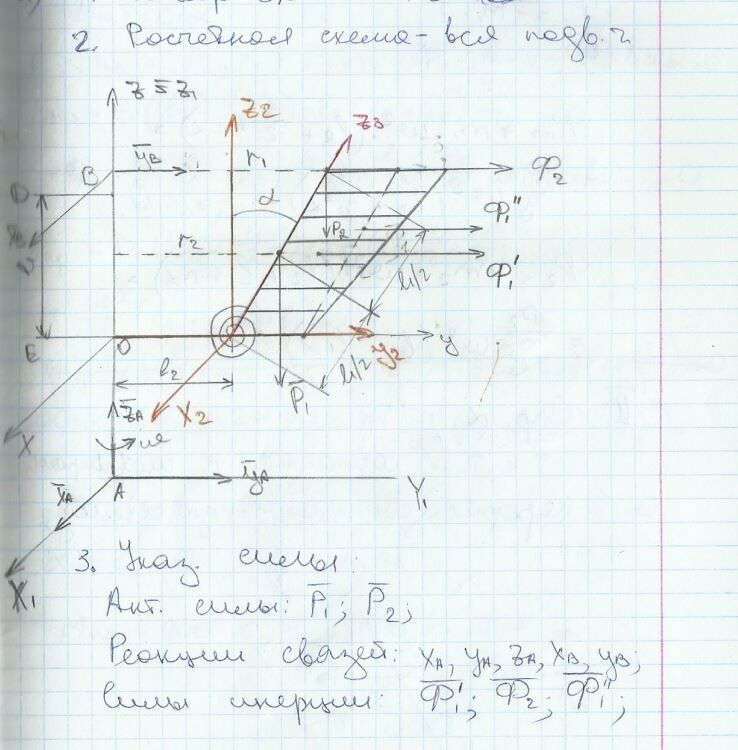 2. Расчётная схема - вся подв. г.
Z ≡ Z₁
Z2
Z3
B
ȳB
r₁
Ф₂
D
α
P₂
Ф₁''
r₂
Ф₁'
l₁/2
E
O
y
y₂
l₁/2
l₂
P̄₁
X
X₂
z̄A
ω
x̄A
A
ȳA
Y₁
X₁
3. Указ. силы:
Акт. силы: P̄₁; P̄₂;
Реакции связей: XA, YA, ZA, XB, YB;
Силы инерции: Ф̄₁'; Ф̄₂; Ф̄₁'';